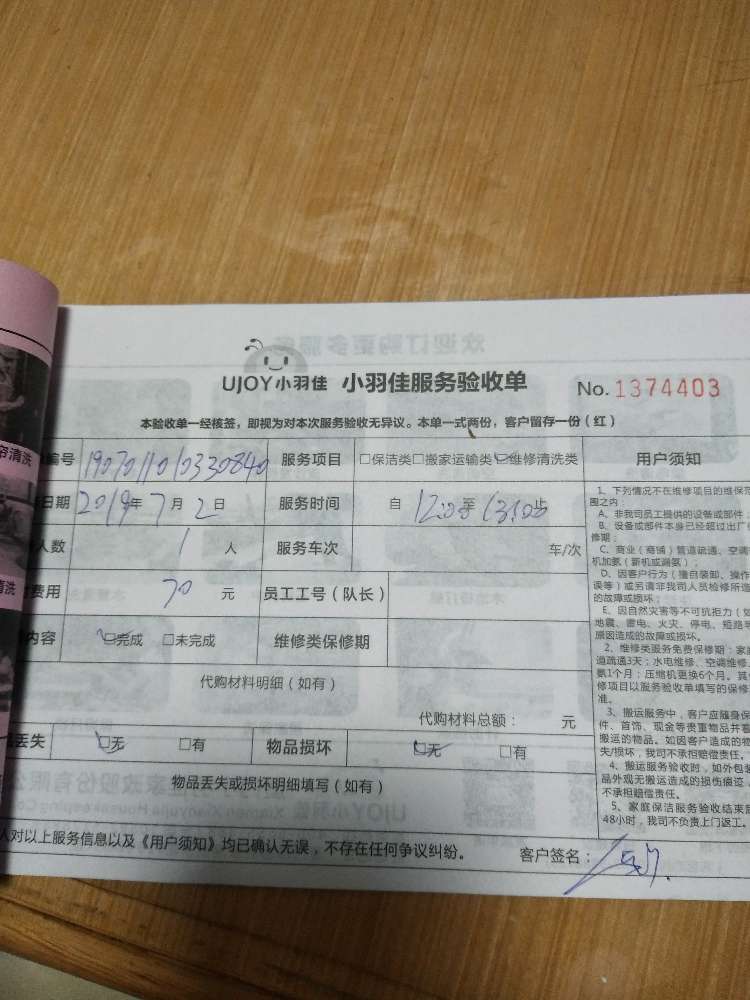 UJOY小羽佳 小羽佳服务验收单 No. 1374403
本验收单一经核签，即视为对本次服务验收无异议。本单一式两份，客户留存一份（红）
编号 1907011010330840 服务项目 □保洁类□搬家运输类☑维修清洗类 用户须知
日期 2019年7月2日 服务时间 自 至 止
人数 1 人 服务车次 车/次
费用 70 元 员工工号（队长）
内容 ☑完成 □未完成 维修类保修期
代购材料明细（如有）
代购材料总额： 元
丢失 ☑无 □有 物品损坏 ☑无 □有
物品丢失或损坏明细填写（如有）
人对以上服务信息以及《用户须知》均已确认无误，不存在任何争议纠纷。 客户签名：
1、下列情况不在维修项目的维保范
围之内：
A、非我司员工提供的设备或部件；
B、设备或部件本身已经超过出厂
修期；
C、商业（商铺）管道疏通、空调
机加氨（新机或漏氨）；
D、因客户行为（擅自装卸、操作
误等）或另请非我司人员检修所造
的故障或损坏；
E、因自然灾害等不可抗拒力（如
地震、雷电、火灾、停电、短路等
原因造成的故障或损坏。
2、维修类服务免费保修期：家庭
道疏通3天；水电维修、空调维修、
氨1个月；压缩机更换6个月。其
修项目以服务验收单填写的保修
准。
3、搬运服务中，客户应随身保
件、首饰、现金等贵重物品并看
搬运的物品。如因客户造成的物
失/损坏，我司不承担赔偿责任。
4、搬运服务验收时，如外包装
品外观无搬运造成的损伤痕迹，
不承担赔偿责任。
5、家庭保洁服务验收结束
48小时，我司不负责上门返工。
清洗
清洗